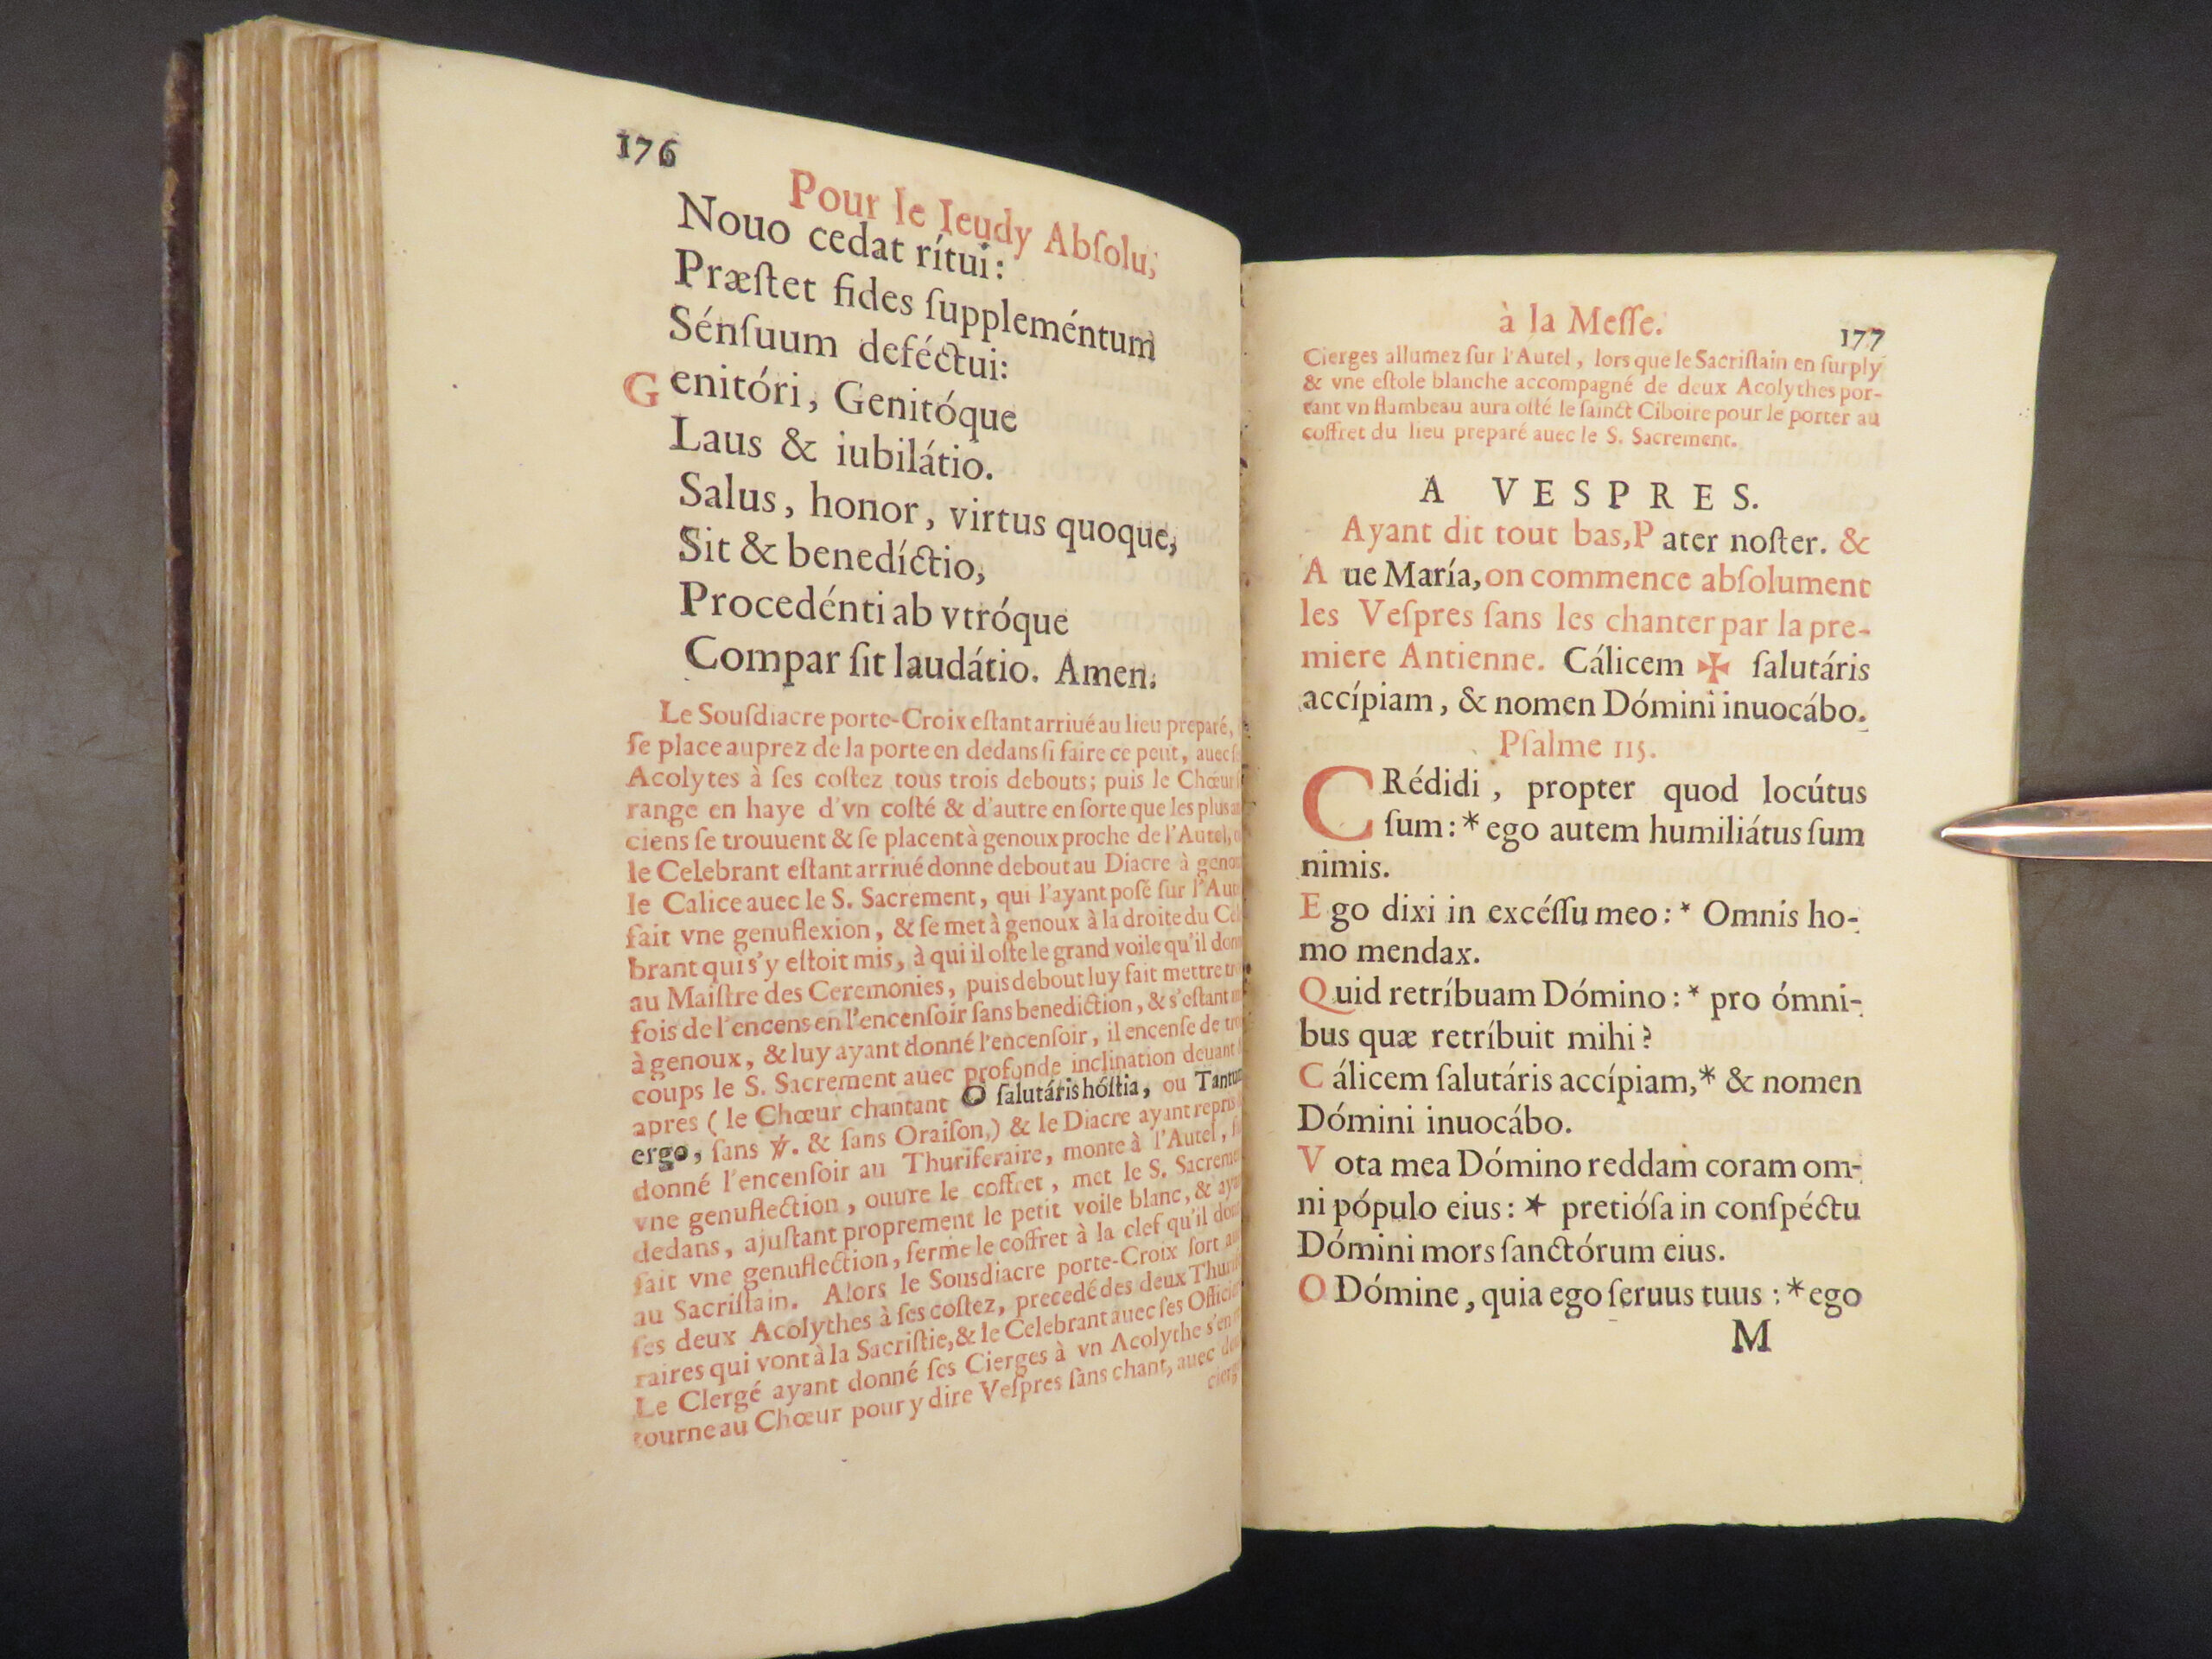 176
Pour le Ieudy Absolu,
Nouo cedat rítui:
Præſtet fides ſuppleméntum
Sénſuum deféctui:
Genitóri, Genitóque
Laus & iubilátio.
Salus, honor, virtus quoque,
Sit & benedíctio,
Procedénti ab vtróque
Compar ſit laudátio. Amen.
Le Souſdiacre porte-Croix eſtant arriué au lieu preparé,
ſe place auprez de la porte en dedans ſi faire ce peut, auec
Acolytes à ſes coſtez tous trois debouts; puis le Chœur
range en haye d'vn coſté & d'autre en ſorte que les plus
ciens ſe trouuent & ſe placent à genoux proche de l'Autel,
le Celebrant eſtant arriué donne debout au Diacre à
le Calice auec le S. Sacrement, qui l'ayant poſé ſur
fait vne genuflexion, & ſe met à genoux à la droite du
brant qui s'y eſtoit mis, à qui il oſte le grand voile qu'il
au Maiſtre des Ceremonies, puis debout luy fait mettre
fois de l'encens en l'encenſoir ſans benediction, & s'eſtant
à genoux, & luy ayant donné l'encenſoir, il encenſe de
coups le S. Sacrement auec profonde inclination deuant
apres ( le Chœur chantant O ſalutáris hóſtia, ou
ergo, ſans ℣. & ſans Oraiſon,) & le Diacre ayant repris
donné l'encenſoir au Thuriferaire, monte à l'Autel,
vne genuflection, ouure le coffret, met le S.
dedans, ajuſtant proprement le petit voile blanc, &
fait vne genuflection, ferme le coffret à la clef qu'il
au Sacriſtain. Alors le Sousdiacre porte-Croix ſort
ſes deux Acolythes à ſes coſtez, precedé des deux
raires qui vont à la Sacriſtie, & le Celebrant auec ſes
Le Clergé ayant donné ſes Cierges à vn Acolythe
tourne au Chœur pour y dire Veſpres ſans chant, auec
à la Meſſe.
177
Cierges allumez ſur l'Autel, lors que le Sacriſtain en ſurply
& vne eſtole blanche accompagné de deux Acolythes por-
tant vn flambeau aura oſté le ſainct Ciboire pour le porter au
coffret du lieu preparé auec le S. Sacrement.
A VESPRES.
Ayant dit tout bas, Pater noſter. &
Aue María, on commence abſolument
les Veſpres ſans les chanter par la pre-
miere Antienne. Cálicem ✠ ſalutáris
accípiam, & nomen Dómini inuocábo.
Pſalme 115.
CRédidi, propter quod locútus
ſum: * ego autem humiliátus ſum
nimis.
Ego dixi in excéſſu meo: * Omnis ho-
mo mendax.
Quid retríbuam Dómino: * pro ómni-
bus quæ retríbuit mihi?
Cálicem ſalutáris accípiam, * & nomen
Dómini inuocábo.
Vota mea Dómino reddam coram om-
ni pópulo eius: * pretióſa in conſpéctu
Dómini mors ſanctórum eius.
O Dómine, quia ego ſeruus tuus : * ego
M